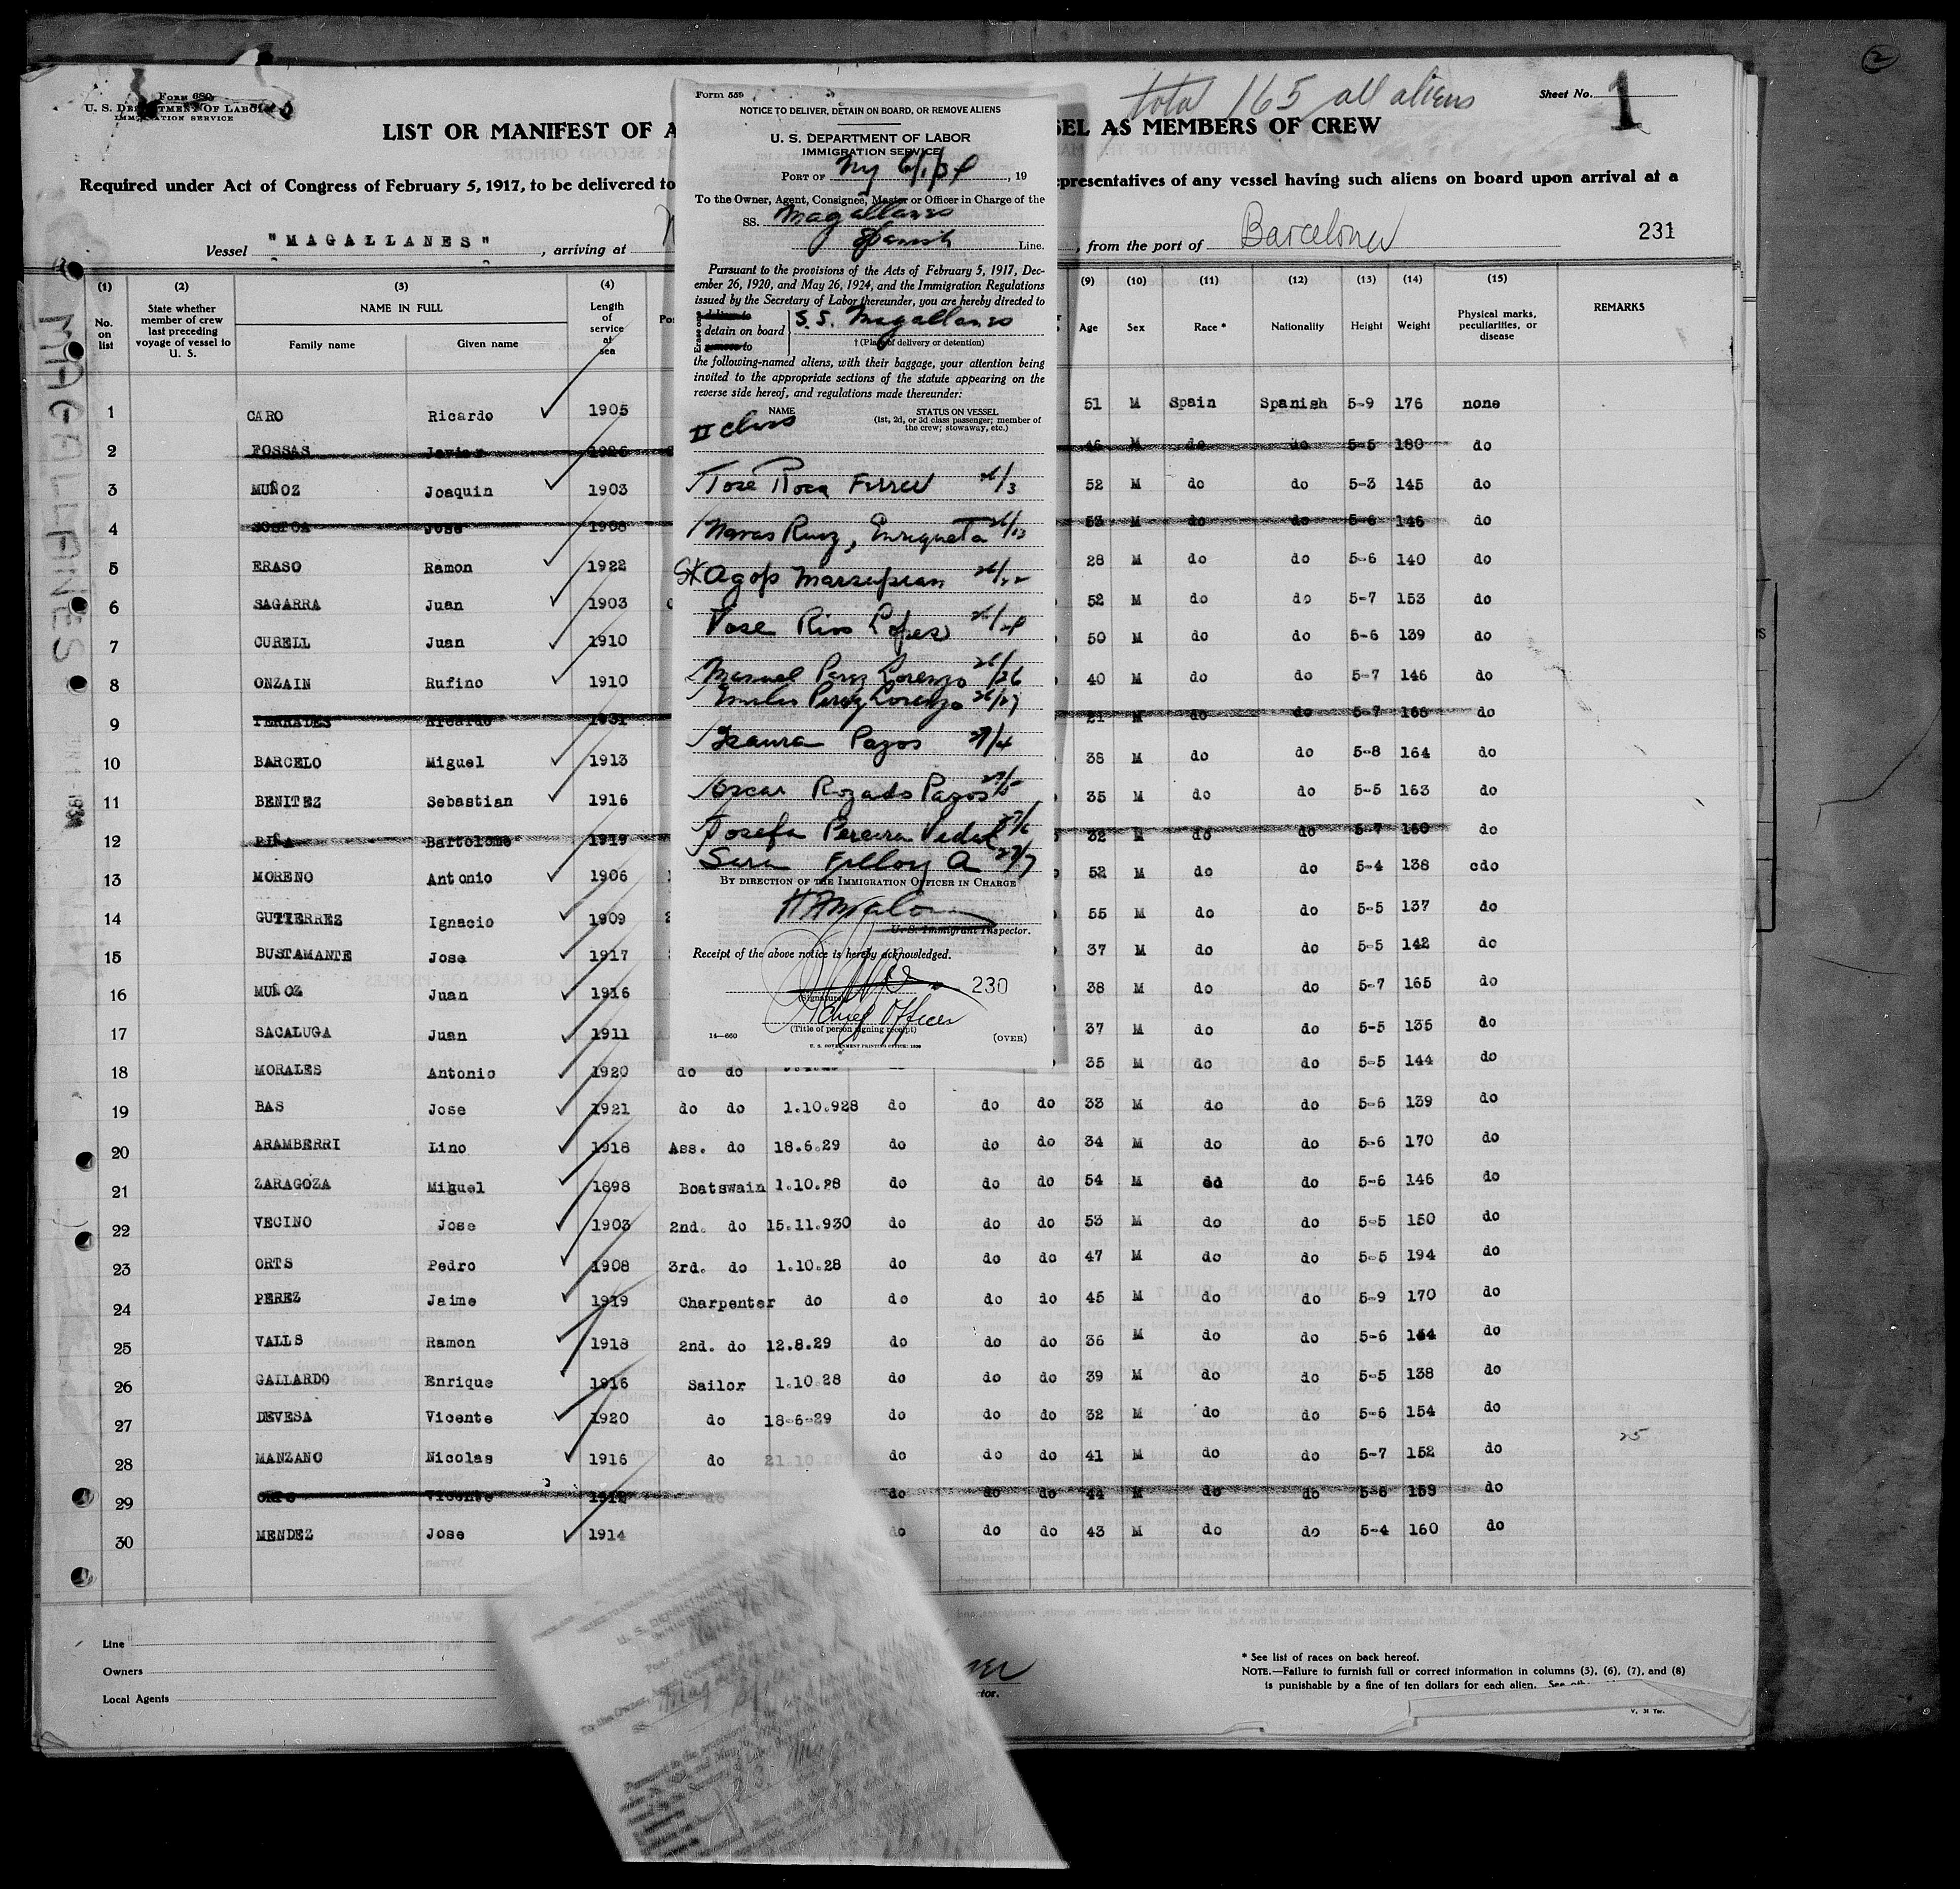 2
Form 680
U. S. DEPARTMENT OF LABOR
IMMIGRATION SERVICE
total 165 all aliens
Sheet No. 1
LIST OR MANIFEST OF A
SEL AS MEMBERS OF CREW
Required under Act of Congress of February 5, 1917, to be delivered to
epresentatives of any vessel having such aliens on board upon arrival at a
Vessel "MAGALLANES", arriving at
, from the port of Barcelona
231
(1) (2) (3) (4) (9) (10) (11) (12) (13) (14) (15)
No. on list
State whether member of crew last preceding voyage of vessel to U. S.
NAME IN FULL
Family name Given name
Length of service at sea
Age Sex Race * Nationality Height Weight
Physical marks, peculiarities, or disease
REMARKS
1 CARO Ricardo 1905 51 M Spain Spanish 5-9 176 none
2 FOSSAS Javier 1926 46 M do do 5-5 180 do
3 MUÑOZ Joaquin 1903 52 M do do 5-3 145 do
4 Jose 1908 53 M do do 5-6 146 do
5 ERASO Ramon 1922 28 M do do 5-6 140 do
6 SAGARRA Juan 1903 52 M do do 5-7 153 do
7 CURELL Juan 1910 50 M do do 5-6 139 do
8 ONZAIN Rufino 1910 40 M do do 5-7 146 do
9 Ricardo 1931 21 M do do 5-7 do
10 BARCELO Miguel 1913 38 M do do 5-8 164 do
11 BENITEZ Sebastian 1916 35 M do do 5-5 163 do
12 PIÑA Bartolome 1919 32 M do do 5-7 160 do
13 MORENO Antonio 1906 52 M do do 5-4 138 cdo
14 GUTIERREZ Ignacio 1909 55 M do do 5-5 137 do
15 BUSTAMANTE Jose 1917 37 M do do 5-5 142 do
16 MUÑOZ Juan 1916 38 M do do 5-7 165 do
17 SACALUGA Juan 1911 37 M do do 5-5 135 do
18 MORALES Antonio 1920 do do 35 M do do 5-5 144 do
19 BAS Jose 1921 do do 1.10.928 do do do 33 M do do 5-6 139 do
20 ARAMBERRI Lino 1918 Ass. do 18.6.29 do do do 34 M do do 5-6 170 do
21 ZARAGOZA Miguel 1898 Boatswain 1.10.28 do do do 54 M do do 5-6 146 do
22 VECINO Jose 1903 2nd. do 15.11.930 do do do 53 M do do 5-5 150 do
23 ORTS Pedro 1908 3rd. do 1.10.28 do do do 47 M do do 5-5 194 do
24 PEREZ Jaime 1919 Charpenter do do do do 45 M do do 5-9 170 do
25 VALLS Ramon 1918 2nd. do 12.8.29 do do do 36 M do do 5-6 do
26 GALLARDO Enrique 1916 Sailor 1.10.28 do do do 39 M do do 5-5 138 do
27 DEVESA Vicente 1920 do 18-6-29 do do do 32 M do do 5-6 154 do
28 MANZANO Nicolas 1916 do do do do 41 M do do 5-7 152 do
29 ORTS Vicente 1912 do do do do 44 M do do 5-6 159 do
30 MENDEZ Jose 1914 do do do 43 M do do 5-4 160 do
25
Form 559
NOTICE TO DELIVER, DETAIN ON BOARD, OR REMOVE ALIENS
U. S. DEPARTMENT OF LABOR
IMMIGRATION SERVICE
PORT OF Ny 6/1/34, 19
To the Owner, Agent, Consignee, Master or Officer in Charge of the
SS. Magallanes
Spanish Line.
Pursuant to the provisions of the Acts of February 5, 1917, Dec-
ember 26, 1920, and May 26, 1924, and the Immigration Regulations
issued by the Secretary of Labor thereunder, you are hereby directed to
Erase one
deliver to
detain on board
remove to
S.S. Magallanes
† (Place of delivery or detention)
the following-named aliens, with their baggage, your attention being
invited to the appropriate sections of the statute appearing on the
reverse side hereof, and regulations made thereunder:
NAME
STATUS ON VESSEL
(1st, 2d, or 3d class passenger; member of
the crew; stowaway, etc.)
II class
Jose Roca Ferrer 26/3
Navas Ruiz, Enriqueta 26/13
Agop
Jose Rios Lopez
Manuel Perez Lorenzo 26/26
Perez Lorenzo 26/27
Isaura Pazos 27/4
Oscar Rozado Pazos 27/5
Josefa Pereira Vidal 27/6
27/7
BY DIRECTION OF THE IMMIGRATION OFFICER IN CHARGE
U. S. Immigrant Inspector.
Receipt of the above notice is hereby acknowledged.
230
(Signature)
Chief Officer
(Title of person signing receipt)
14—660
(OVER)
U. S. GOVERNMENT PRINTING OFFICE: 1930
Line
Owners
Local Agents
* See list of races on back hereof.
NOTE.—Failure to furnish full or correct information in columns (3), (6), (7), and (8)
is punishable by a fine of ten dollars for each alien. See